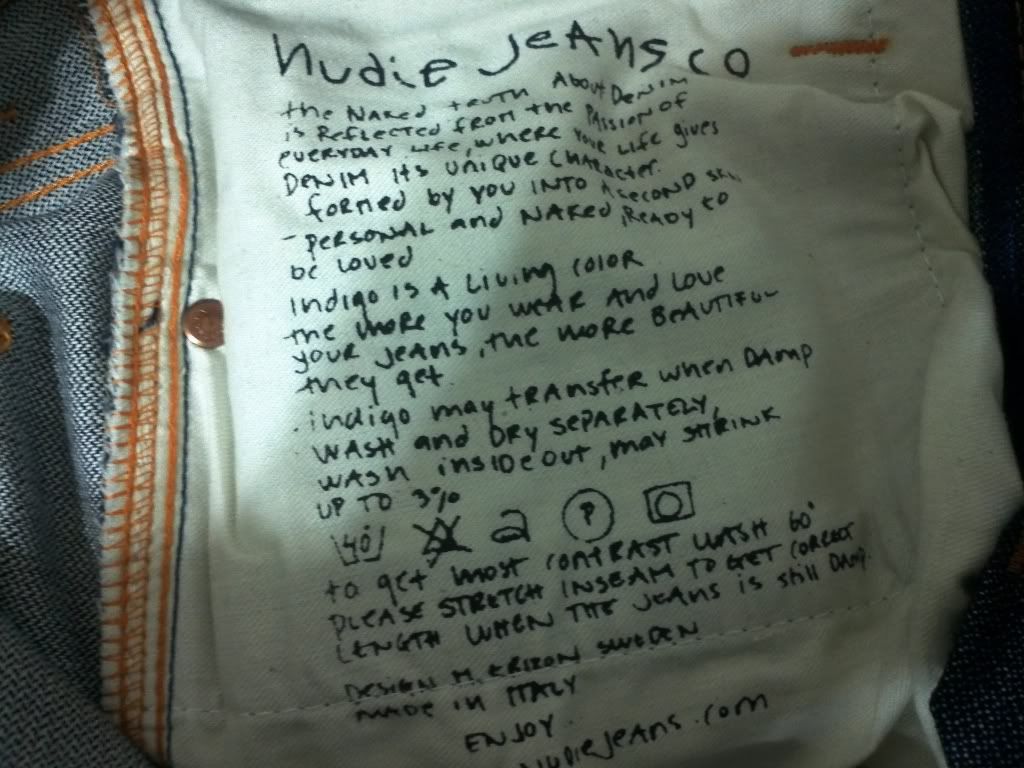 nudie Jeans co
the NAKED truth About DENIM
is REFLECTED from the PASSION of
EVERYDAY LIFE, WHERE YOUR LIFE gives
DENIM its UNIQUE CHARACTER.
formed by you INTO A SECOND
- PERSONAL and NAKED, READY to
be Loved
Indigo IS A Living COLOR
the MORE YOU WEAR AND LOVE
YOUR JEANS, the MORE BEAUTIFUL
they get.
indigo may tRANSFER when DAMP
WASH and DRY SEPARATELY,
WASH insideout, may SHRINK
UP TO 3%
40 P
to get most CONTRAST WASH 60°
PLEASE STRETCH INSEAM TO GET CORRECT
LENGTH WHEN THE JEANS is still DAMP.
DESIGN M. ERIXON SWEDEN
MADE in ITALY
ENJOY.
nudiejeans.com